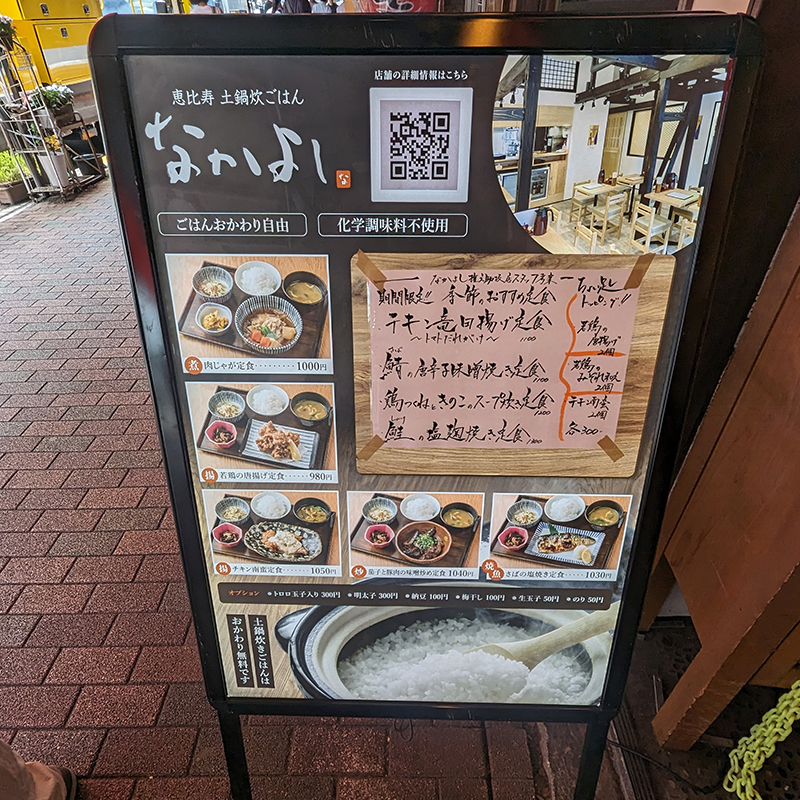 店舗の詳細情報はこちら
恵比寿 土鍋炊ごはん
なかよし
な
ごはんおかわり自由
化学調味料不使用
期間限定!! 季節のおすすめ定食
チキン竜田揚げ定食
〜トマトだれがけ〜 1100
さば
鯖の唐辛子味噌焼き定食 1100
・鶏つくねときのこのスープ炊き定食 1200
鮭の塩麹焼き定食 1300
ちょい足し
トッピング!!
若鶏の
唐揚げ
2個
若鶏の
みぞれ和え
2個
チキン南蛮
2個
各300-
煮 肉じゃが定食 1000円
揚 若鶏の唐揚げ定食 980円
揚 チキン南蛮定食 1050円
炒 茄子と豚肉の味噌炒め定食 1040円
焼魚 さばの塩焼き定食 1030円
オプション ●トロロ玉子入り 300円 ●明太子 300円 ●納豆 100円 ●梅干し 100円 ●生玉子 50円 ●のり 50円
土鍋炊きごはんは
おかわり無料です